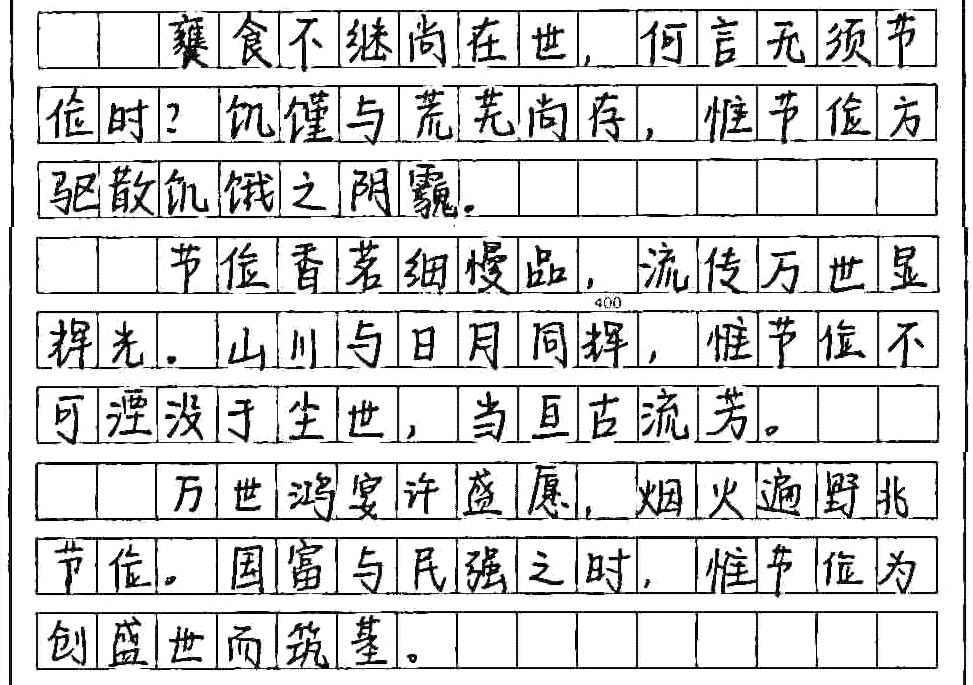 饔食不继尚在世，何言无须节
俭时？饥馑与荒芜尚存，惟节俭方
驱散饥饿之阴霾。
节俭香茗细慢品，流传万世显
400
辉光。山川与日月同辉，惟节俭不
可湮没于尘世，当亘古流芳。
万世鸿宴许盛愿，烟火遍野兆
节俭。国富与民强之时，惟节俭为
创盛世而筑基。